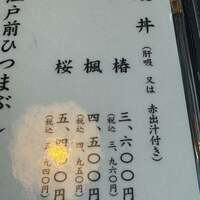 丼（肝吸 又は 赤出汁付き）
椿 三、六〇〇円
（税込 三、九六〇円）
楓 四、五〇〇円
（税込 四、九五〇円）
桜 五、四〇〇円
（税込 五、九四〇円）
江戸前ひつまぶし